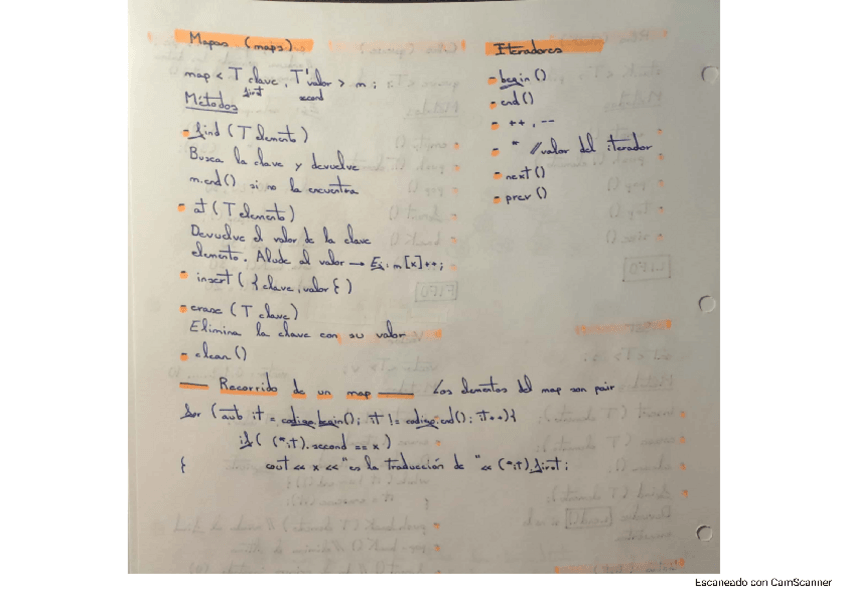 Mapas (maps)
map < T clave, T'valor > m ;
first second
Métodos
- find ( T elemento )
Busca la clave y devuelve
m.end() si no la encuentra
- at ( T elemento )
Devuelve el valor de la clave
elemento. Alude al valor → Ej. m[x]++;
- insert ( { clave, valor } )
- erase ( T clave )
Elimina la clave con su valor
- clear ()
Recorrido de un map — Los elementos del map son pair
for (auto it = codigo.begin(); it != codigo.end(); it++){
if( (*it).second == x )
} cout << x << "es la traducción de " << (*it).first;
Iteradores
- begin ()
- end ()
- ++ , --
- * //valor del iterador
- next ()
- prev ()
Escaneado con CamScanner